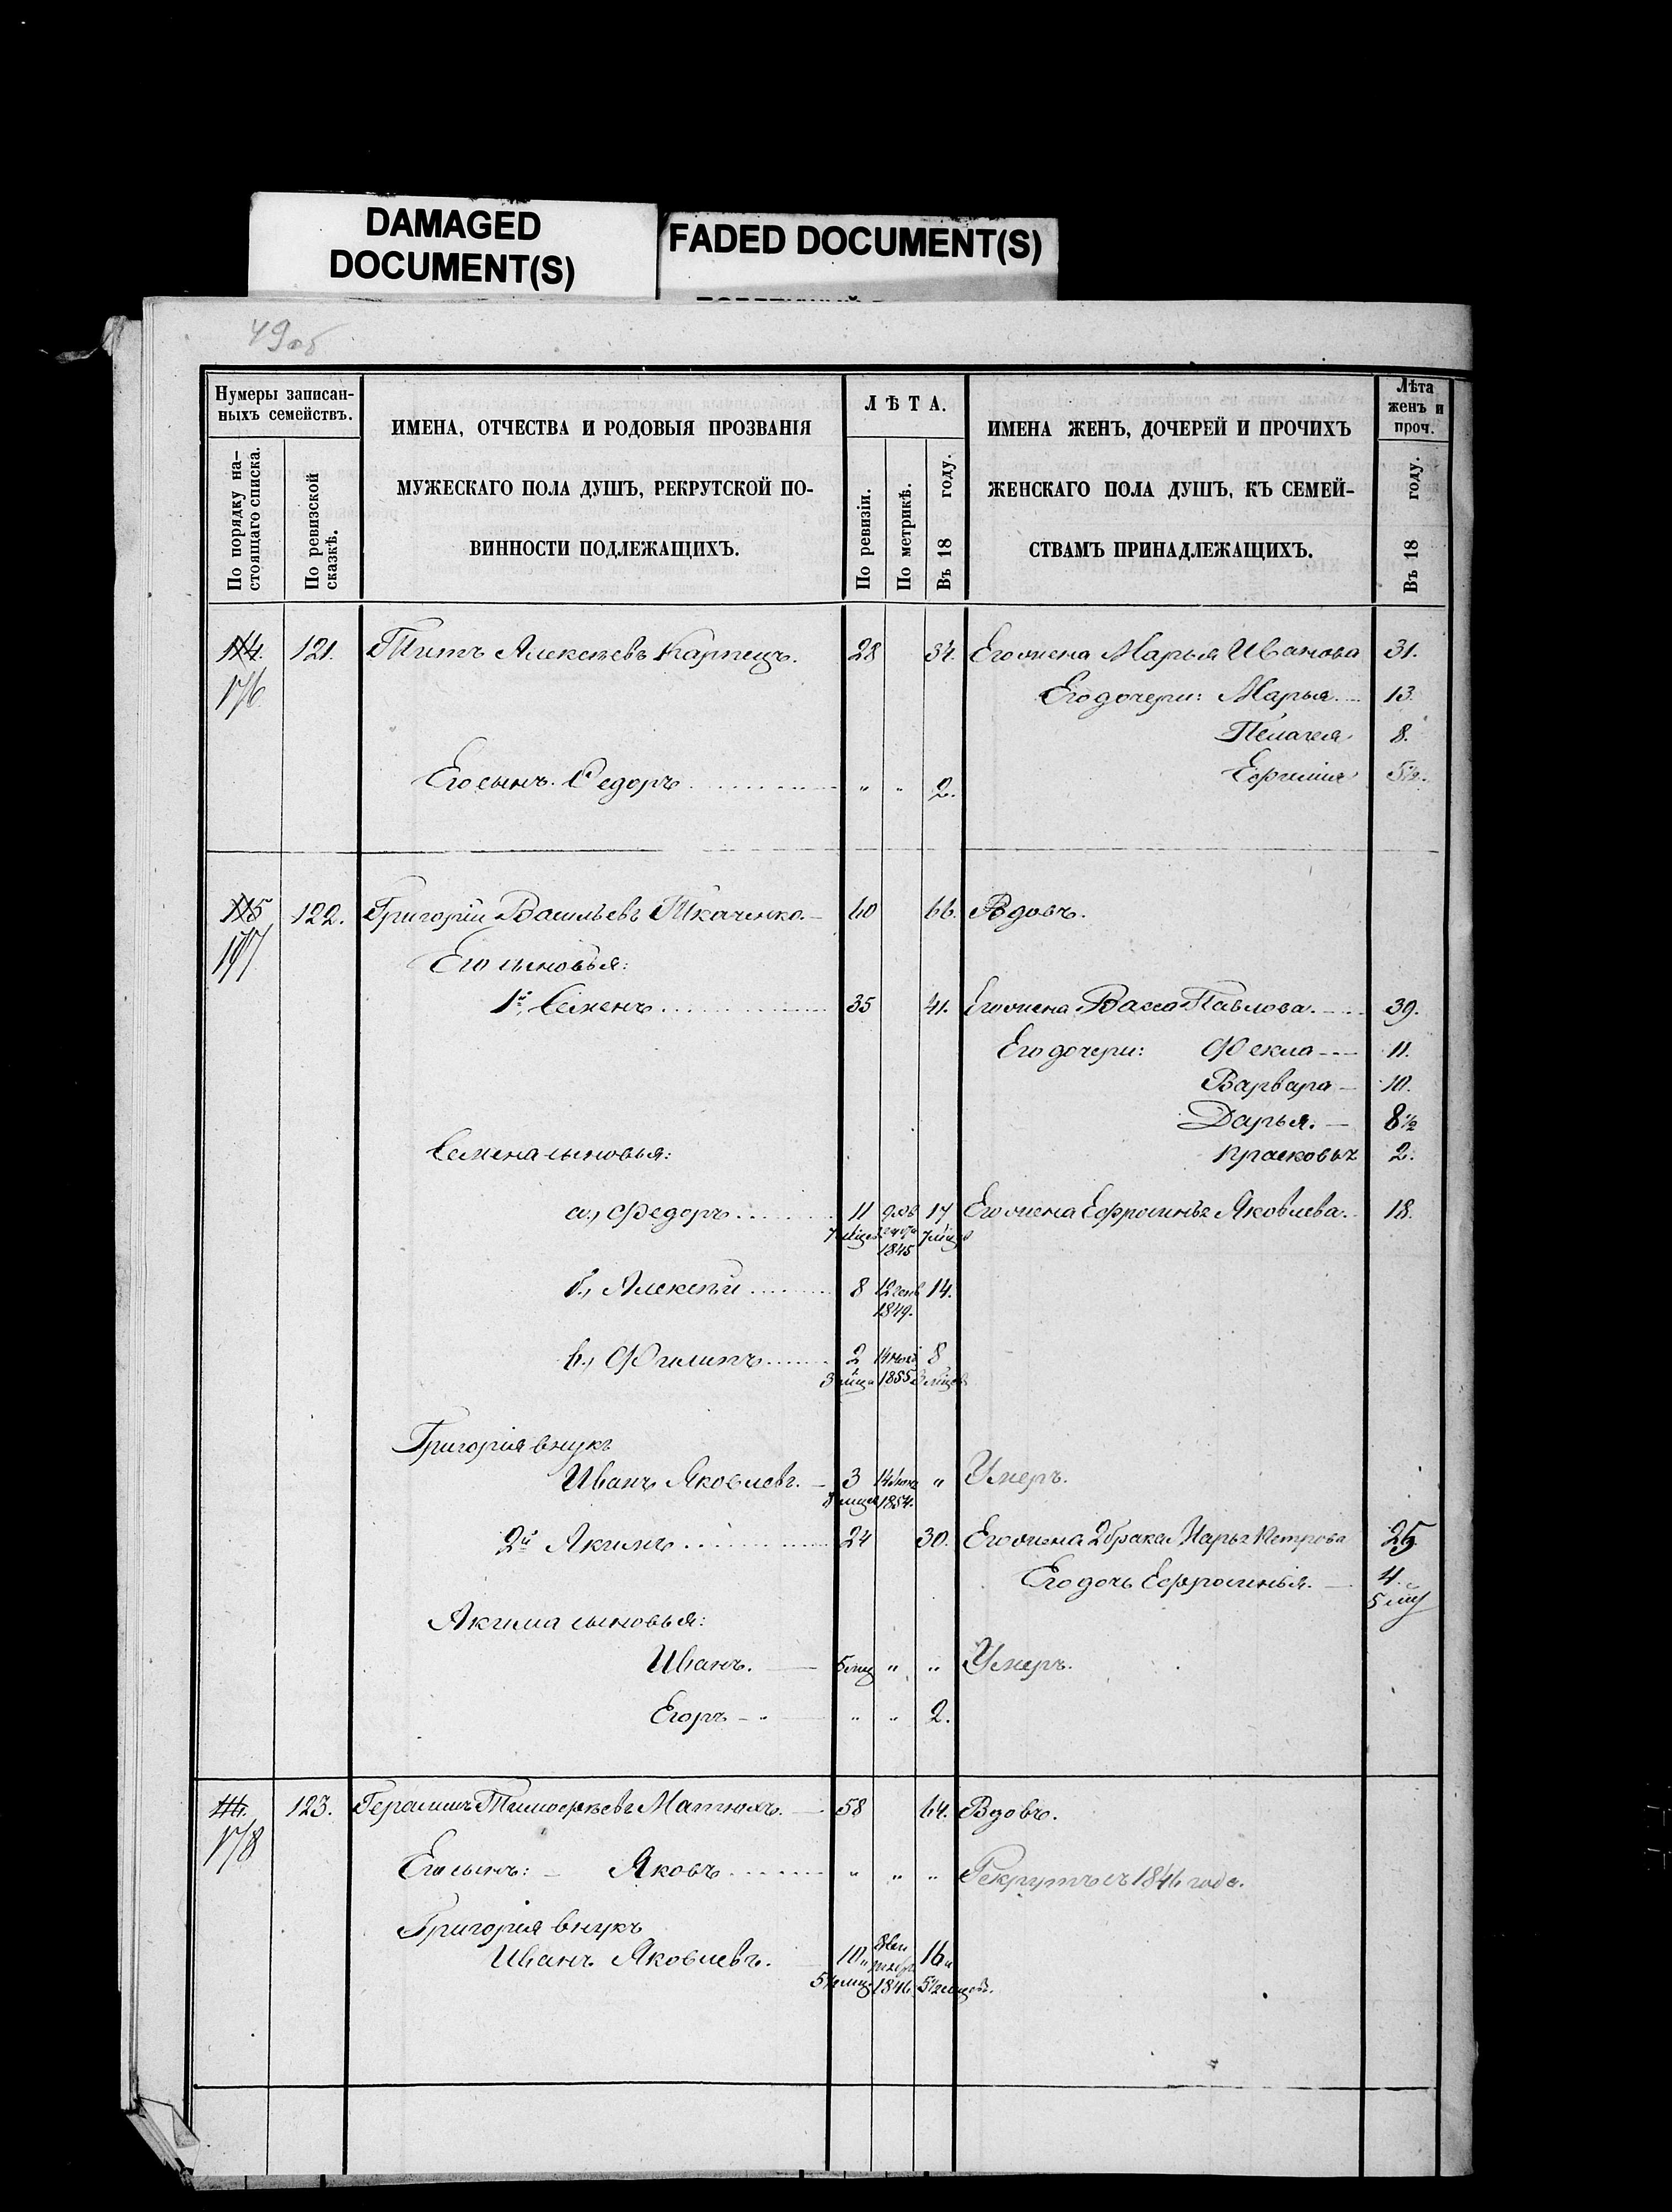 DAMAGED
DOCUMENT(S)
FADED DOCUMENT(S)
49об
Нумеры записан-
ныхъ семействъ.
По порядку на-
стоящаго списка.
По ревизской
сказкѣ.
ИМЕНА, ОТЧЕСТВА И РОДОВЫЯ ПРОЗВАНІЯ
МУЖЕСКАГО ПОЛА ДУШЪ, РЕКРУТСКОЙ ПО-
ВИННОСТИ ПОДЛЕЖАЩИХЪ.
ЛѢТА.
По ревизіи.
По метрикѣ.
Въ 18 году.
ИМЕНА ЖЕНЪ, ДОЧЕРЕЙ И ПРОЧИХЪ
ЖЕНСКАГО ПОЛА ДУШЪ, КЪ СЕМЕЙ-
СТВАМЪ ПРИНАДЛЕЖАЩИХЪ.
Лѣта
женъ и
проч.
Въ 18 году.
114. 121. Титъ Алексѣевъ Карпецъ. 28 34. Его жена Марья Иванова 31.
176 Его дочери: Марья 13.
Пелагея 8.
Ефимия 5½.
Его сынъ. Федоръ " " 2.
115 122. Григорій Васильевъ Ткаченко. 60 66. Вдовъ.
177 Его сыновья:
1й Семенъ 35 41. Его жена Васса Павлова. 39.
Его дочери: Фекла 11.
Варвара 10.
Дарья. 8½
Семена сыновья: Прасковья 2.
а., Федоръ 11 17 Его жена Ефросинья Яковлева. 18.
7 мѣся 1845 7 мѣся
б., Алексѣй 8 14.
1849.
в., Филипъ 2 8
1855
Григорія внукъ
Иванъ Яковлевъ. 3 " Умеръ.
1854.
2й Акимъ 24 30. Его жена 2 брака Марья Петрова 25
Его дочь Ефросинья. 4.
5 мц
Акима сыновья:
Иванъ. 5 мц " " Умеръ.
Егоръ " " 2.
123. Герасимъ Тимофѣевъ Матюхъ. 58 64. Вдовъ.
178
Его сынъ: Яковъ " " " Рекрутъ съ 1846 года.
Григорія внукъ
Иванъ Яковлевъ. 10 и 16 и
5½ мц 1846 5½